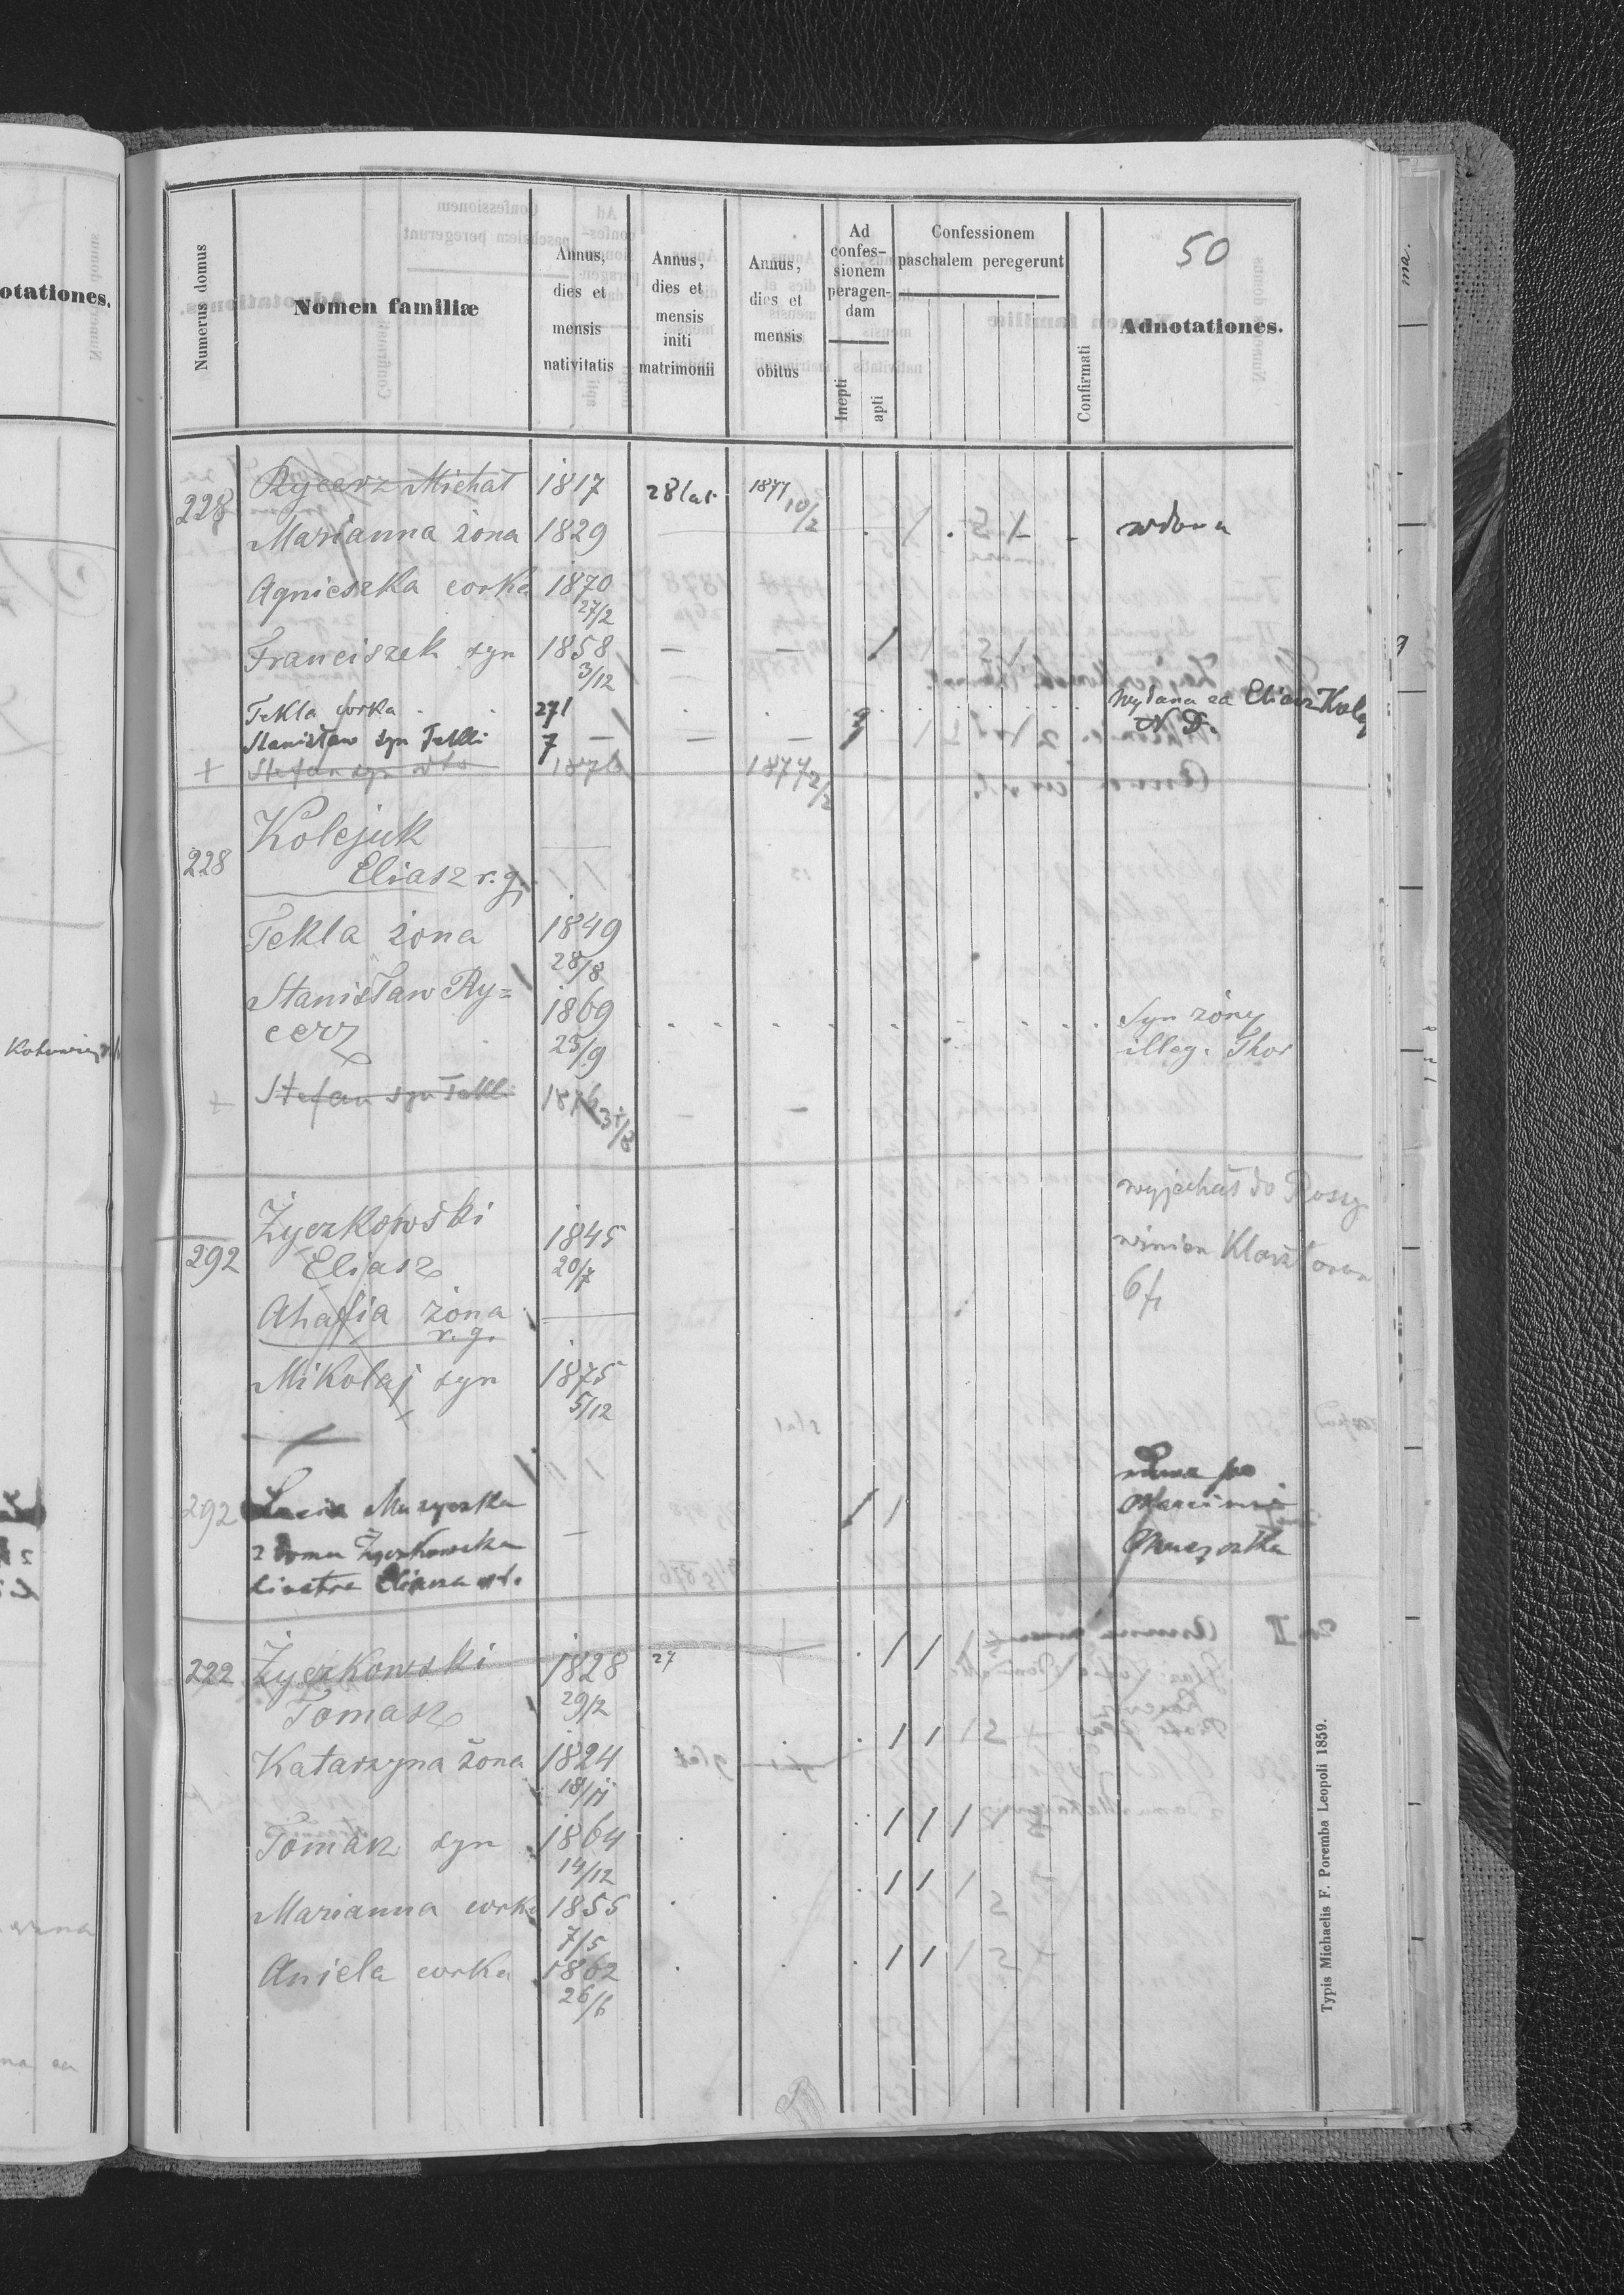 50
Numerus domus
Nomen familiæ
Annus, dies et mensis nativitatis
Annus, dies et mensis initi matrimonii
Annus, dies et mensis obitus
Ad confes-sionem peragen-dam
Inepti
apti
Confessionem paschalem peregerunt
Confirmati
Adnotationes.
228 Rycerz Michał 1817 28 lat 1877 10/2
Marianna żona 1829 wdowa
Agnieszka corka 1870 27/2
Franciszek syn 1858 3/12
Tekla corka 271 wydana za Eliasz Kolej
Stanisław syn Tekli 7 N D.
+ Stefan syn 1876 1877 2/2
228 Kolejuk
Eliasz r. g.
Tekla żona 1849 28/8
Stanisław Ry=
cerz 1869 25/9 Syn żóny
illeg. Thor
+ Stefan syn Tekli 1876 31/8
292 Życzkowski
Eliasz 1845 20/7 wyjechał do Rossy
winien Klasztoru
6 fr
Ahafia żona
r. g.
Mikolaj syn 1875 5/12
292 Muzyczka
z domu Życzkowska
siostra Eliasza
222 Życzkowski 1828 27
Tomasz 29/2
Katarzyna żona 1824 18/11
Tomasz syn 1864 14/12
Marianna corka 1855 7/5
Aniela corka 1862 26/6
Typis Michaelis F. Poremba Leopoli 1859.
otationes.